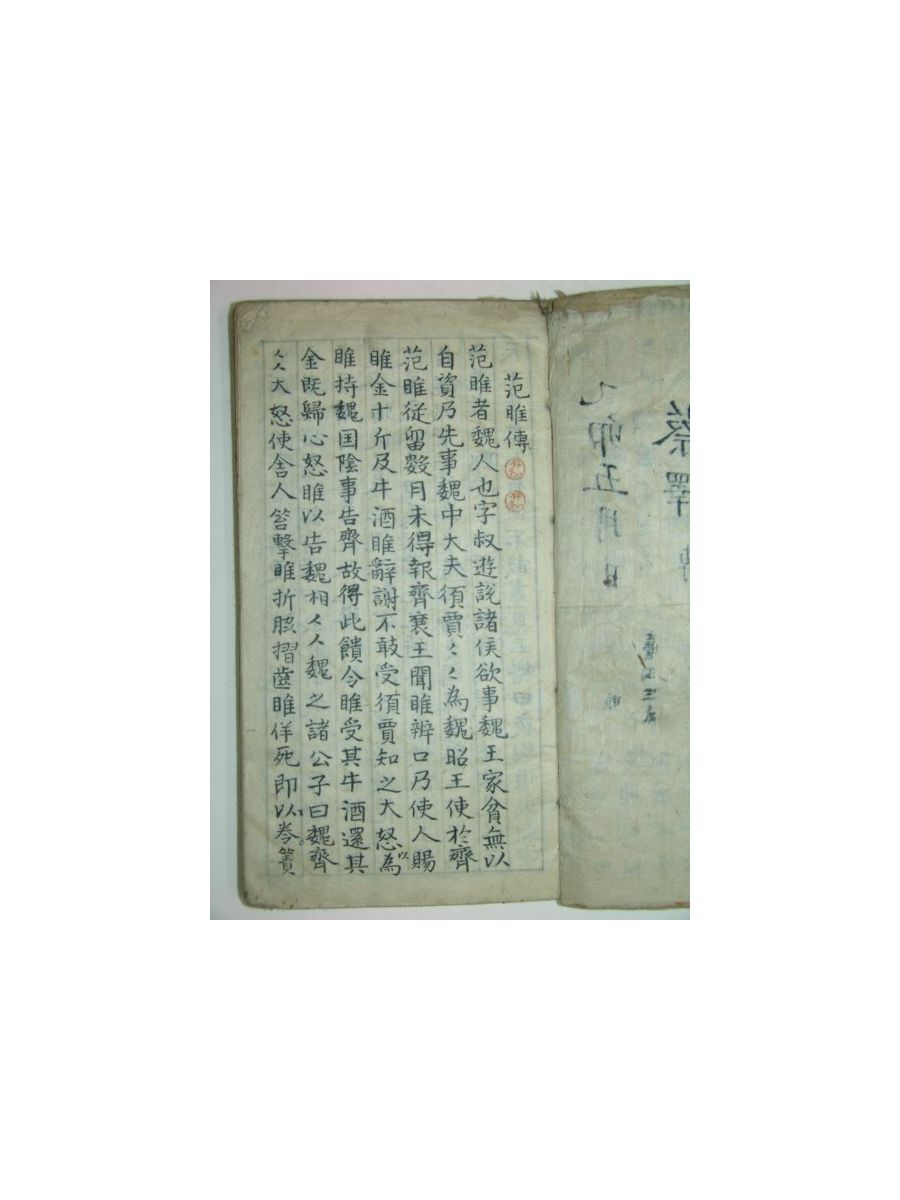 蔡澤傳
乙卯五月日
范睢傳
范睢者魏人也字叔遊說諸侯欲事魏王家貧無以
自資乃先事魏中大夫須賈〻〻為魏昭王使於齊
范睢從留數月未得報齊襄王聞睢辨口乃使人賜
睢金十斤及牛酒睢辭謝不敢受須賈知之大怒以為
睢持魏国陰事告齊故得此饋令睢受其牛酒還其
金既歸心怒睢以告魏相〻〻魏之諸公子曰魏齊
〻〻大怒使舍人笞擊睢折脇摺齒睢佯死即以卷簀